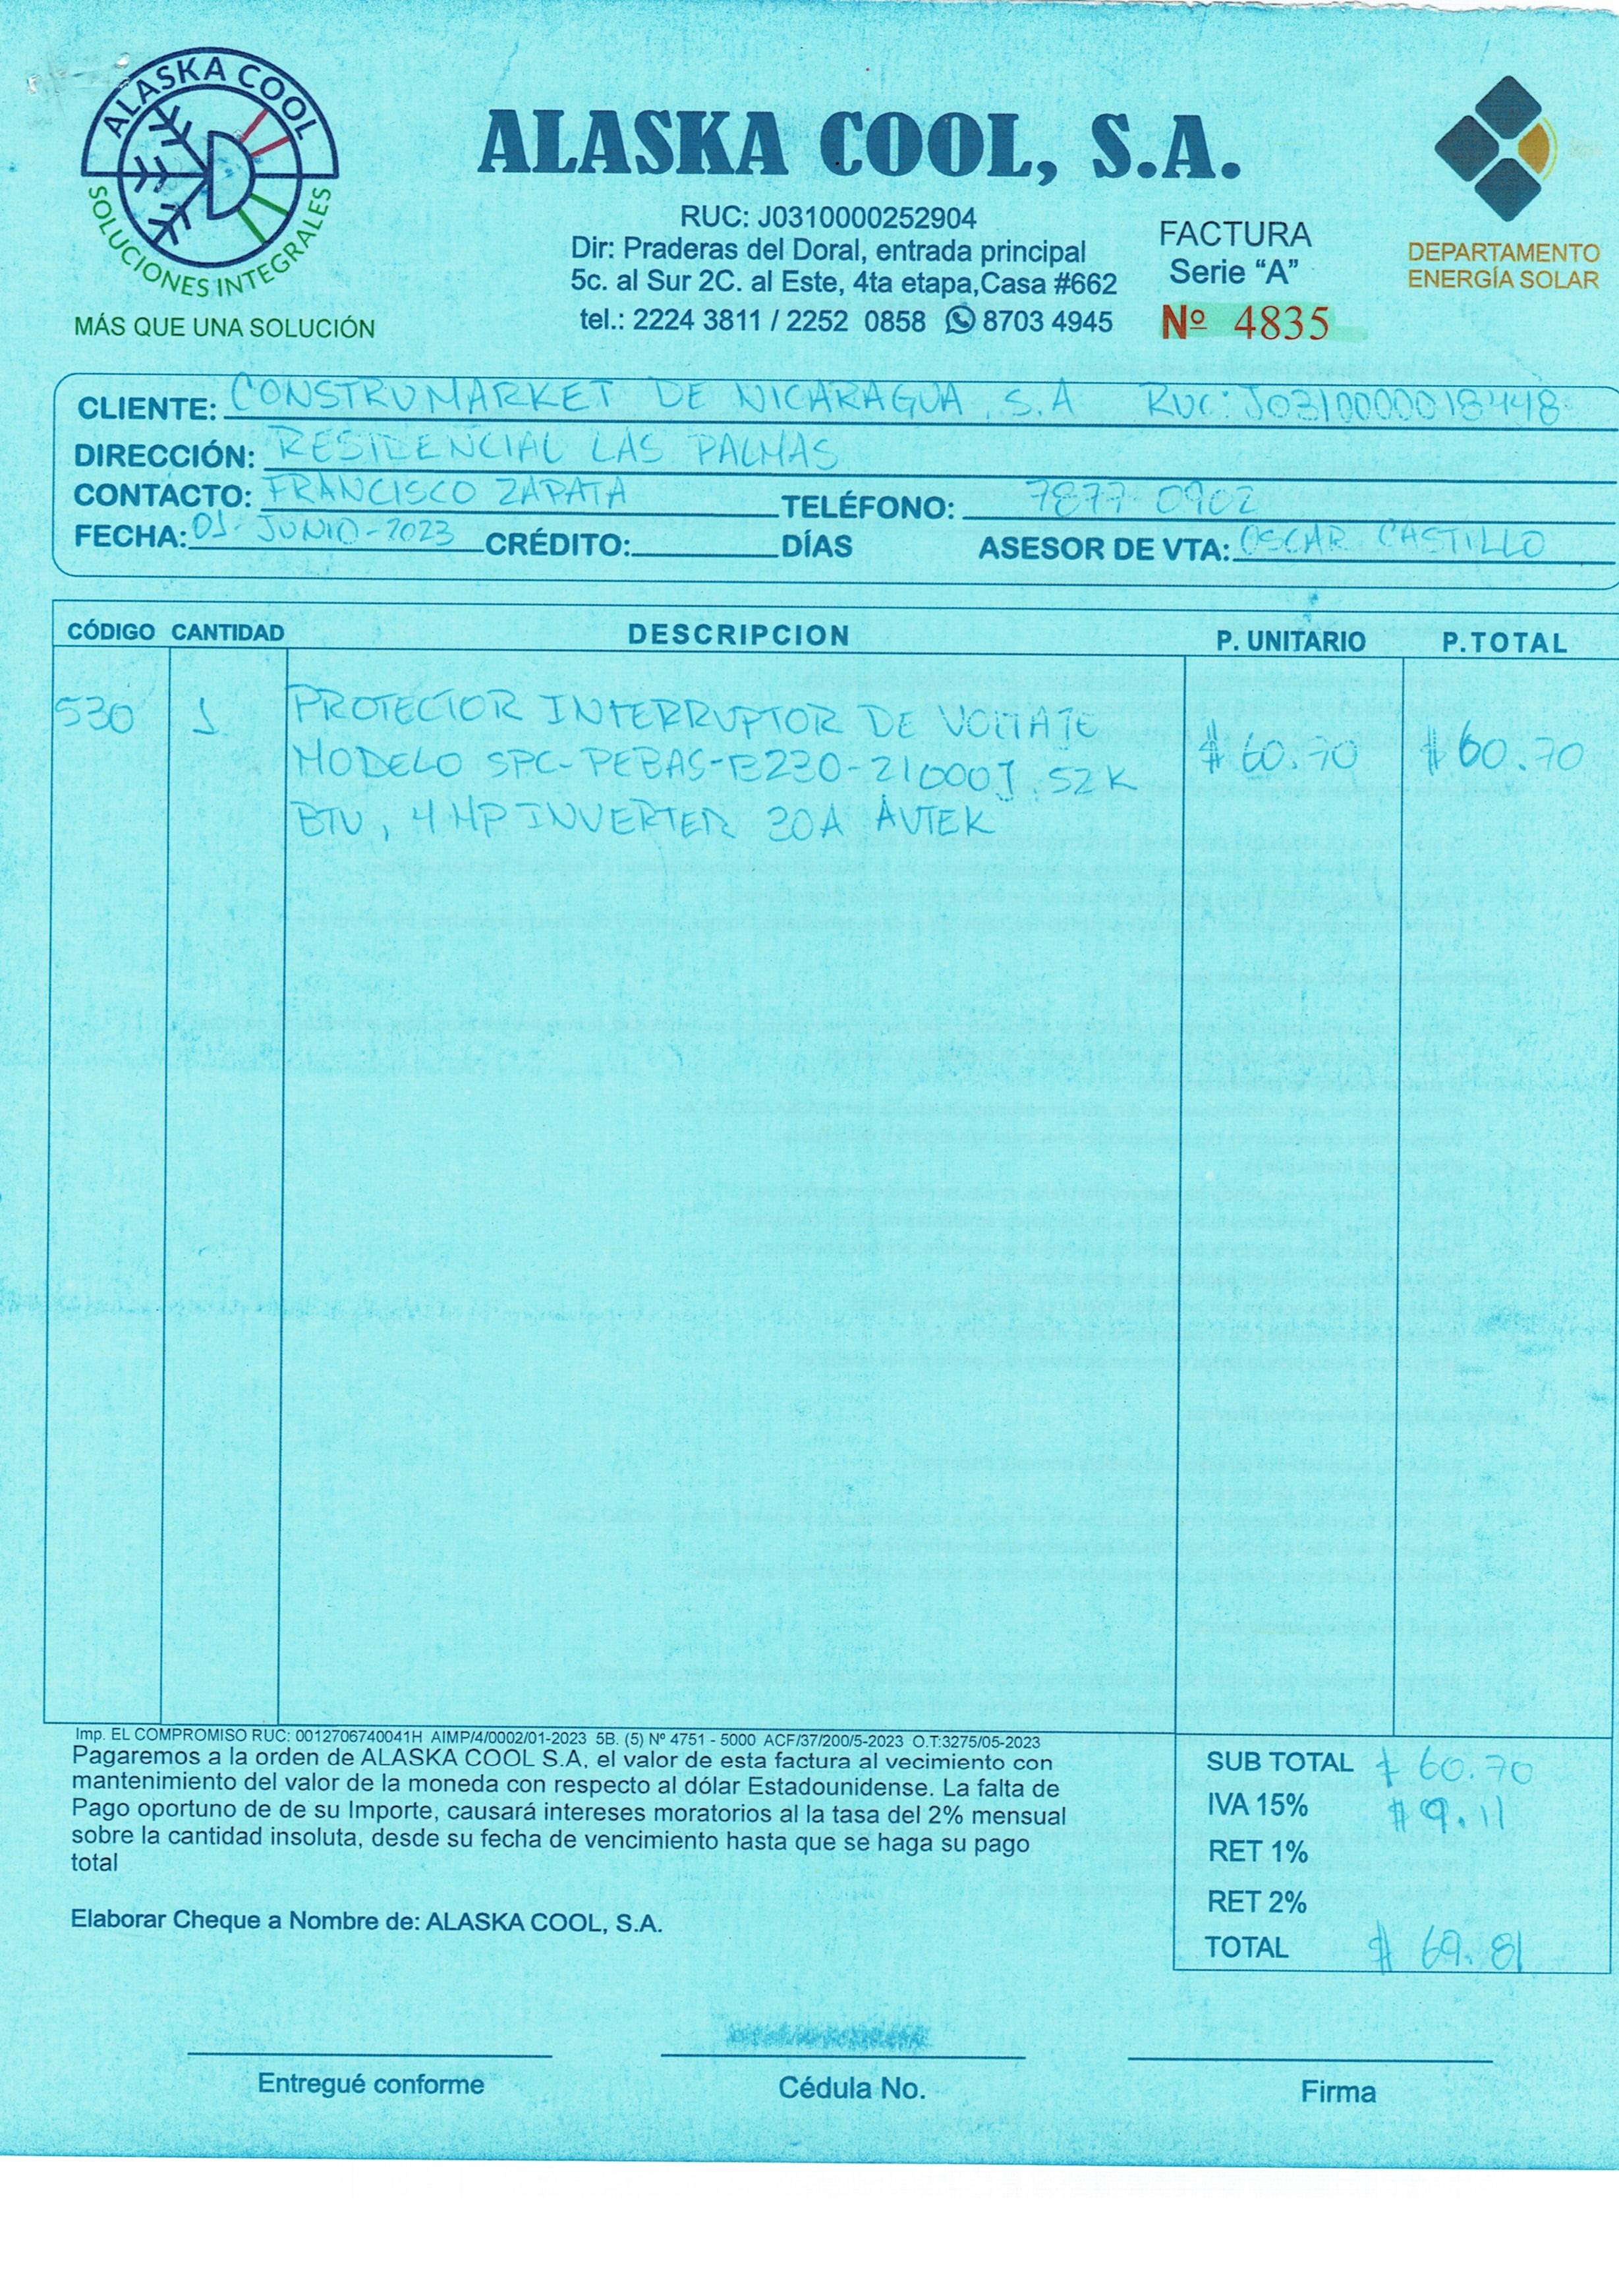 ALASKA COOL
SOLUCIONES INTEGRALES
MÁS QUE UNA SOLUCIÓN
ALASKA COOL, S.A.
RUC: J0310000252904
Dir: Praderas del Doral, entrada principal
5c. al Sur 2C. al Este, 4ta etapa,Casa #662
tel.: 2224 3811 / 2252 0858 8703 4945
FACTURA
Serie “A”
Nº 4835
DEPARTAMENTO
ENERGÍA SOLAR
CLIENTE: CONSTRUMARKET DE NICARAGUA, S.A RUC: J0310000018448
DIRECCIÓN: RESIDENCIAL LAS PALMAS
CONTACTO: FRANCISCO ZAPATA TELÉFONO: 7877-0902
FECHA: 01-JUNIO-2023 CRÉDITO: DÍAS ASESOR DE VTA: OSCAR CASTILLO
CÓDIGO CANTIDAD DESCRIPCION P. UNITARIO P.TOTAL
530 1 PROTECTOR INTERRUPTOR DE VOLTAJE $ 60.70 $ 60.70
MODELO SPC-PEBAS-E230-21000J. 52K
BTU, 4 HP INVERTER 30A AVTEK
Imp. EL COMPROMISO RUC: 0012706740041H AIMP/4/0002/01-2023 5B. (5) Nº 4751 - 5000 ACF/37/200/5-2023 O.T:3275/05-2023
Pagaremos a la orden de ALASKA COOL S.A, el valor de esta factura al vecimiento con
mantenimiento del valor de la moneda con respecto al dólar Estadounidense. La falta de
Pago oportuno de de su Importe, causará intereses moratorios al la tasa del 2% mensual
sobre la cantidad insoluta, desde su fecha de vencimiento hasta que se haga su pago
total
Elaborar Cheque a Nombre de: ALASKA COOL, S.A.
SUB TOTAL $ 60.70
IVA 15% $ 9.11
RET 1%
RET 2%
TOTAL $ 69.81
Entregué conforme
Cédula No.
Firma